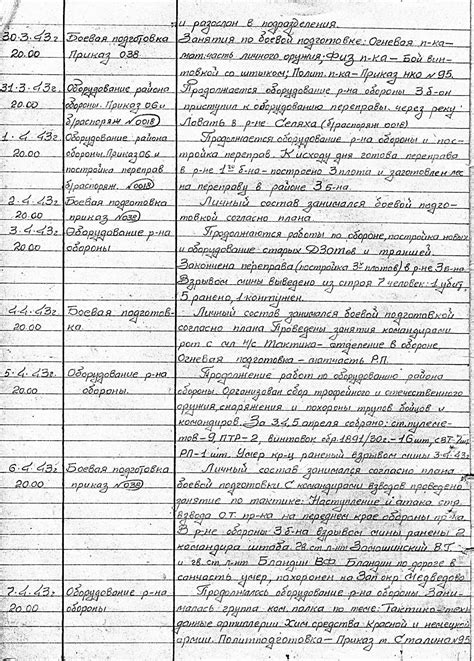 и разослан в подразделения.
30.3.43г Боевая подготовка Занятия по боевой подготовке: Огневая п-ка-
20.00 Приказ 038 матчасть личного оружия, Физ. п-ка – Бой вин-
товкой со штыком; Полит. п-ка – Приказ НКО №95.
31.3.43г Оборудование района Продолжается оборудование р-на обороны 3 б-он
20.00 обороны. Приказ 06 и приступил к оборудованию переправы через реку
б/распоряж. №0018 Ловать в р-не Селяха (б/распоряж 0018)
1.4.43г Оборудование района Продолжается оборудование р-на обороны и пос-
20.00 обороны. Приказ 06 и тройка переправ. К исходу дня готова переправа
постройка переправ в р-не 1го б-на – построено 3 плота и заготовлен лес
б/распоряж. №0018 на переправу в районе 3 б-на.
2.4.43г Боевая подготовка Личный состав занимался боевой подго-
20.00 приказ №038 товкой согласно плана
3.4.43г Оборудование р-на Продолжаются работы по обороне, постройка новых
20.00 обороны и оборудование старых ДЗОТов и траншей.
Закончена переправа (постройка 3х плотов) в р-не 3 б-на
Взрывом мины выведено из строя 7 человек: 1 убит,
5 ранено, 1 контужен.
4.4.43г Боевая подготов- Личный состав занимался боевой подготовкой
20.00 ка. согласно плана. Проведены занятия командирами
рот с сч/л н/с Тактика – отделение в обороне,
Огневая подготовка – матчасть Р.П.
5.4.43г Оборудование р-на Продолжение работ по оборудованию района
20.00 обороны. обороны. Организован сбор трофейного и отечественного
оружия, снаряжения и похороны трупов бойцов и
командиров. За 3,4,5 апреля собрано: ст. пулеме-
тов – 9, ПТР – 2, винтовок обр. 1891/30г. – 16 шт, СВТ – 7 шт,
РП – 1 шт. Умер кр-ц раненый взрывом мины 3.4.43г
6.4.43г Боевая подготовка Личный состав занимался согласно плана
20.00 приказ №038 боевой подготовки. С командирами взводов проведено
занятие по тактике: Наступление и атака стр.
взвода О.Т. пр-ка на переднем крае обороны пр-ка.
В р-не обороны 3 б-на взрывом мины ранены 2
командира штаба гв. ст. л-нт Замошинский В.Т.
и гв. ст. л-нт Бландин В.Ф. Бландин по дороге в
санчасть умер, похоронен на Зап. окр. Медведово
7.4.43г Оборудование р-на Продолжалось оборудование р-на обороны. Зани-
20.00 обороны малась группа ком. полка по теме: Тактико-техни
данные артиллерии. Хим средства Красной и немецкой
армии. Политподготовка – Приказ т. Сталина №95